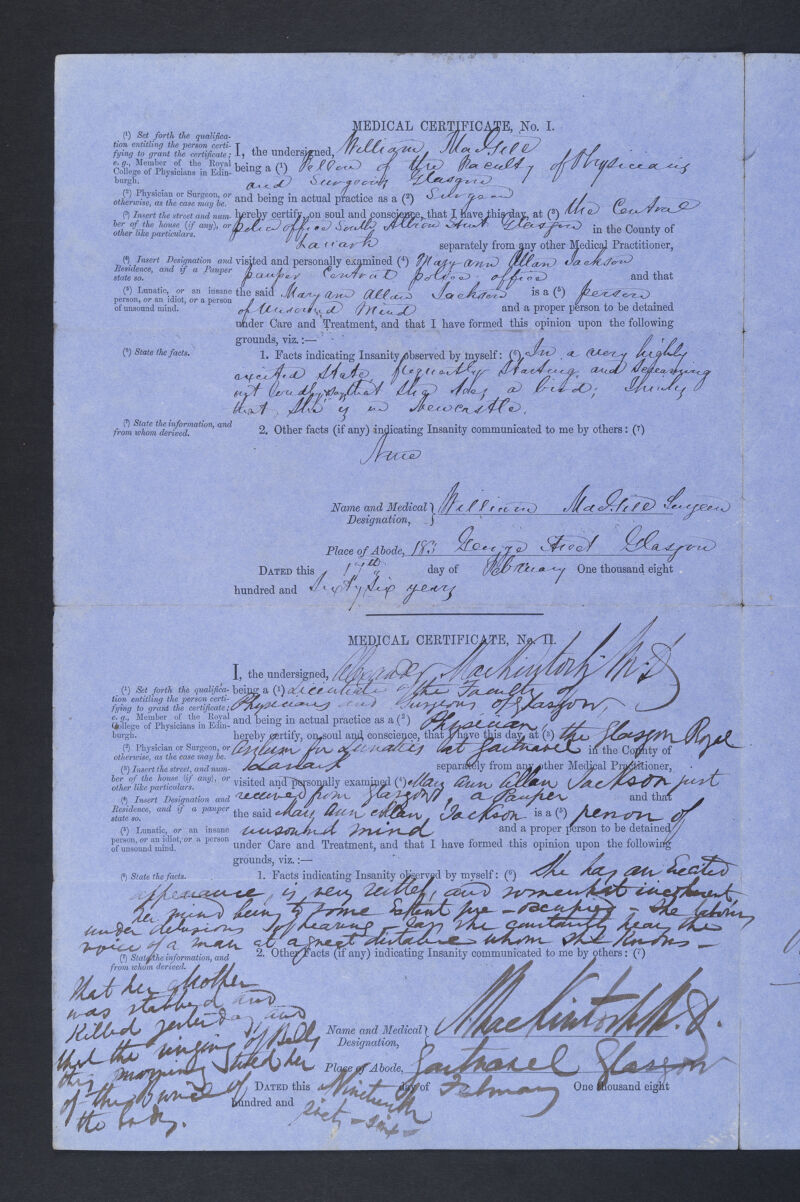 MEDICAL CERTIFICATE, No. I.
(¹) Set forth the qualifica-
tion entitling the person certi-
fying to grant the certificate;
e.g., Member of the Royal
College of Physicians in Edin-
burgh.
I, the undersigned, William
being a (¹) Fellow of the Faculty of Physicians
and Surgeons Glasgow
(²) Physician or Surgeon, or
otherwise, as the case may be.
and being in actual practice as a (²) Surgeon
(³) Insert the street and num-
ber of the house (if any), or
other like particulars.
hereby certify, on soul and conscience, that I have this day, at (³) the Central
police office South Albion Street Glasgow in the County of
Lanark separately from any other Medical Practitioner,
(⁴) Insert Designation and
Residence, and if a Pauper
state so.
visited and personally examined (⁴) Mary ann Allan Jackson
pauper Central police office and that
(⁵) Lunatic, or an insane
person, or an idiot, or a person
of unsound mind.
the said Mary ann allan Jackson is a (⁵) person
of Unsound Mind and a proper person to be detained
under Care and Treatment, and that I have formed this opinion upon the following
grounds, viz.:—
(⁶) State the facts.
1. Facts indicating Insanity observed by myself: (⁶) In a very highly
excited state frequently starting and screaming
out loudly, says that she sees a bird; thinks
that she is in Newcastle.
(⁷) State the information, and
from whom derived.
2. Other facts (if any) indicating Insanity communicated to me by others: (⁷)
None
Name and Medical
Designation,
William Surgeon
Place of Abode, 183 George Street Glasgow
DATED this 17th day of February One thousand eight
hundred and Sixty Six years
MEDICAL CERTIFICATE, No. II.
I, the undersigned, Alexander Mackintosh M.D
(¹) Set forth the qualifica-
tion entitling the person certi-
fying to grant the certificate;
e.g., Member of the Royal
College of Physicians in Edin-
burgh.
being a (¹) Licentiate of the Faculty of
Physicians and Surgeons of Glasgow,
and being in actual practice as a (²) Physician
(²) Physician or Surgeon, or
otherwise, as the case may be.
hereby certify, on soul and conscience, that I have this day, at (³) the Glasgow Royal
Asylum for Lunatics at Gartnavel in the County of
(³) Insert the street, and num-
ber of the house (if any), or
other like particulars.
Lanark separately from any other Medical Practitioner,
visited and personally examined (⁴) Mary Ann Allan Jackson just
(⁴) Insert Designation and
Residence, and if a pauper
state so.
received from Glasgow, a Pauper and that
the said Mary Ann Allan Jackson is a (⁵) person of
(⁵) Lunatic, or an insane
person, or an idiot, or a person
of unsound mind.
unsound mind and a proper person to be detained
under Care and Treatment, and that I have formed this opinion upon the following
grounds, viz.:—
(⁶) State the facts.
1. Facts indicating Insanity observed by myself: (⁶) She has an Excited
appearance, is very restless, and somewhat incoherent,
her mind being to some Extent pre-occupied - She labours
under delusions of hearing, says she constantly hears the
voice of a man at a great distance whom she knows -
(⁷) State the information, and
from whom derived.
2. Other Facts (if any) indicating Insanity communicated to me by others: (⁷)
that her Mother
was stabbed and
Killed yesterday, and
that the ringing of Bells
this morning told her
of the burial of
the body.
Name and Medical
Designation,
MacKintosh M.D.
Place of Abode, Gartnavel Glasgow
DATED this Nineteenth day of February One thousand eight
hundred and sixty-six-